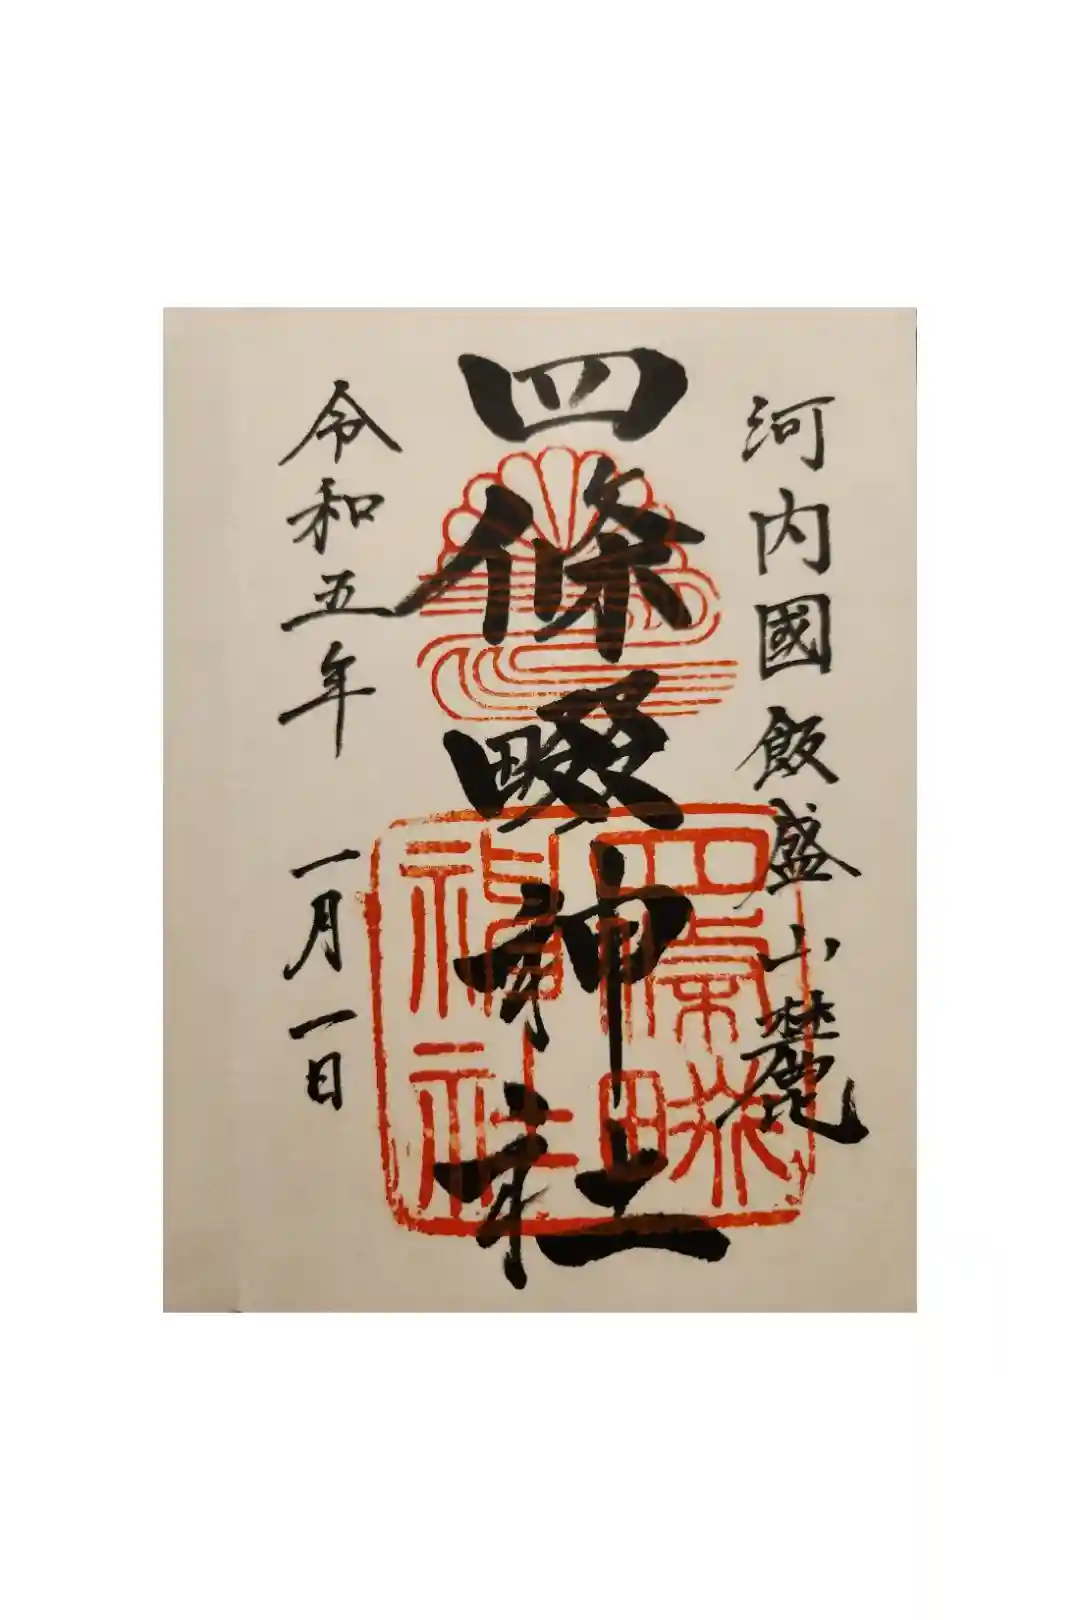 河内國飯盛山麓
四條畷神社
令和五年 一月一日
四條畷神社